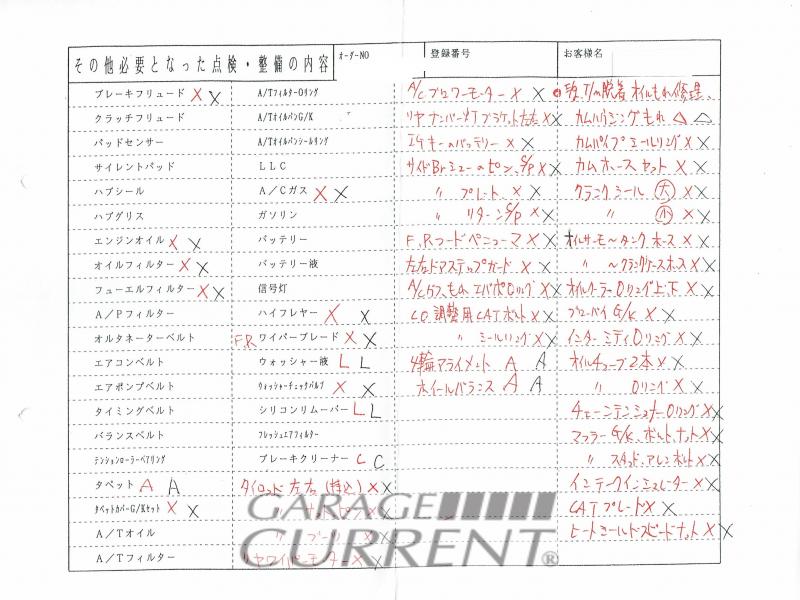 その他必要となった点検・整備の内容 オーダーNO 登録番号 お客様名
ブレーキフリュード X X A/TフィルターOリング A/Cブロワーモーター X X
クラッチフリュード A/TオイルパンG/K リヤナンバー灯ブラケット左右 X X カムハウジングもれ △ △
パッドセンサー A/Tオイルパンシールリング エンキーのバッテリー X X カムパイプシールリング X X
サイレントパッド LLC サイドBrシューのピン、S/P X X カムホースセット X X
ハブシール A/Cガス X X 〃 プレート X X クランクシール 大 X X
ハブグリス ガソリン 〃 リターンS/P X X 〃 小 X X
エンジンオイル X X バッテリー F,Rフードベニューマ X X オイルサーモ〜タンクホース X X
オイルフィルター X X バッテリー液 左右ドアステップガード X X 〃 〜クランクケースホース X X
フューエルフィルター X X 信号灯 オイルクーラーOリング上、下 X X
A/Pフィルター ハイフレヤー X X CO調整用CATボルト X X ブローバイG/K X X
オルタネーターベルト F.R ワイパーブレード X X 〃 シールリング X X インターミディOリング X X
エアコンベルト ウォッシャー液 L L 4輪アライメント A A オイルチューブ2本 X X
エアポンプベルト ウォッシャーチェックバルブ X X ホイールバランス A A 〃 Oリング X X
タイミングベルト シリコンリムーバー L L チェーンテンショナーOリング X X
バランスベルト フレッシュエアフィルター マフラーG/K、ボルト、ナット X X
テンションローラーベアリング ブレーキクリーナー L C 〃 スタッド、アレンボルト X X
タペット A A タイロッド左右(持込) X X インテークインシュレーター X X
タペットカバーG/Kセット X X CATプレート X X
A/Tオイル 〃 ブーツ X X ヒートシールド、スピードナット X X
A/Tフィルター リヤワイパーモーター X X
GARAGE CURRENT®